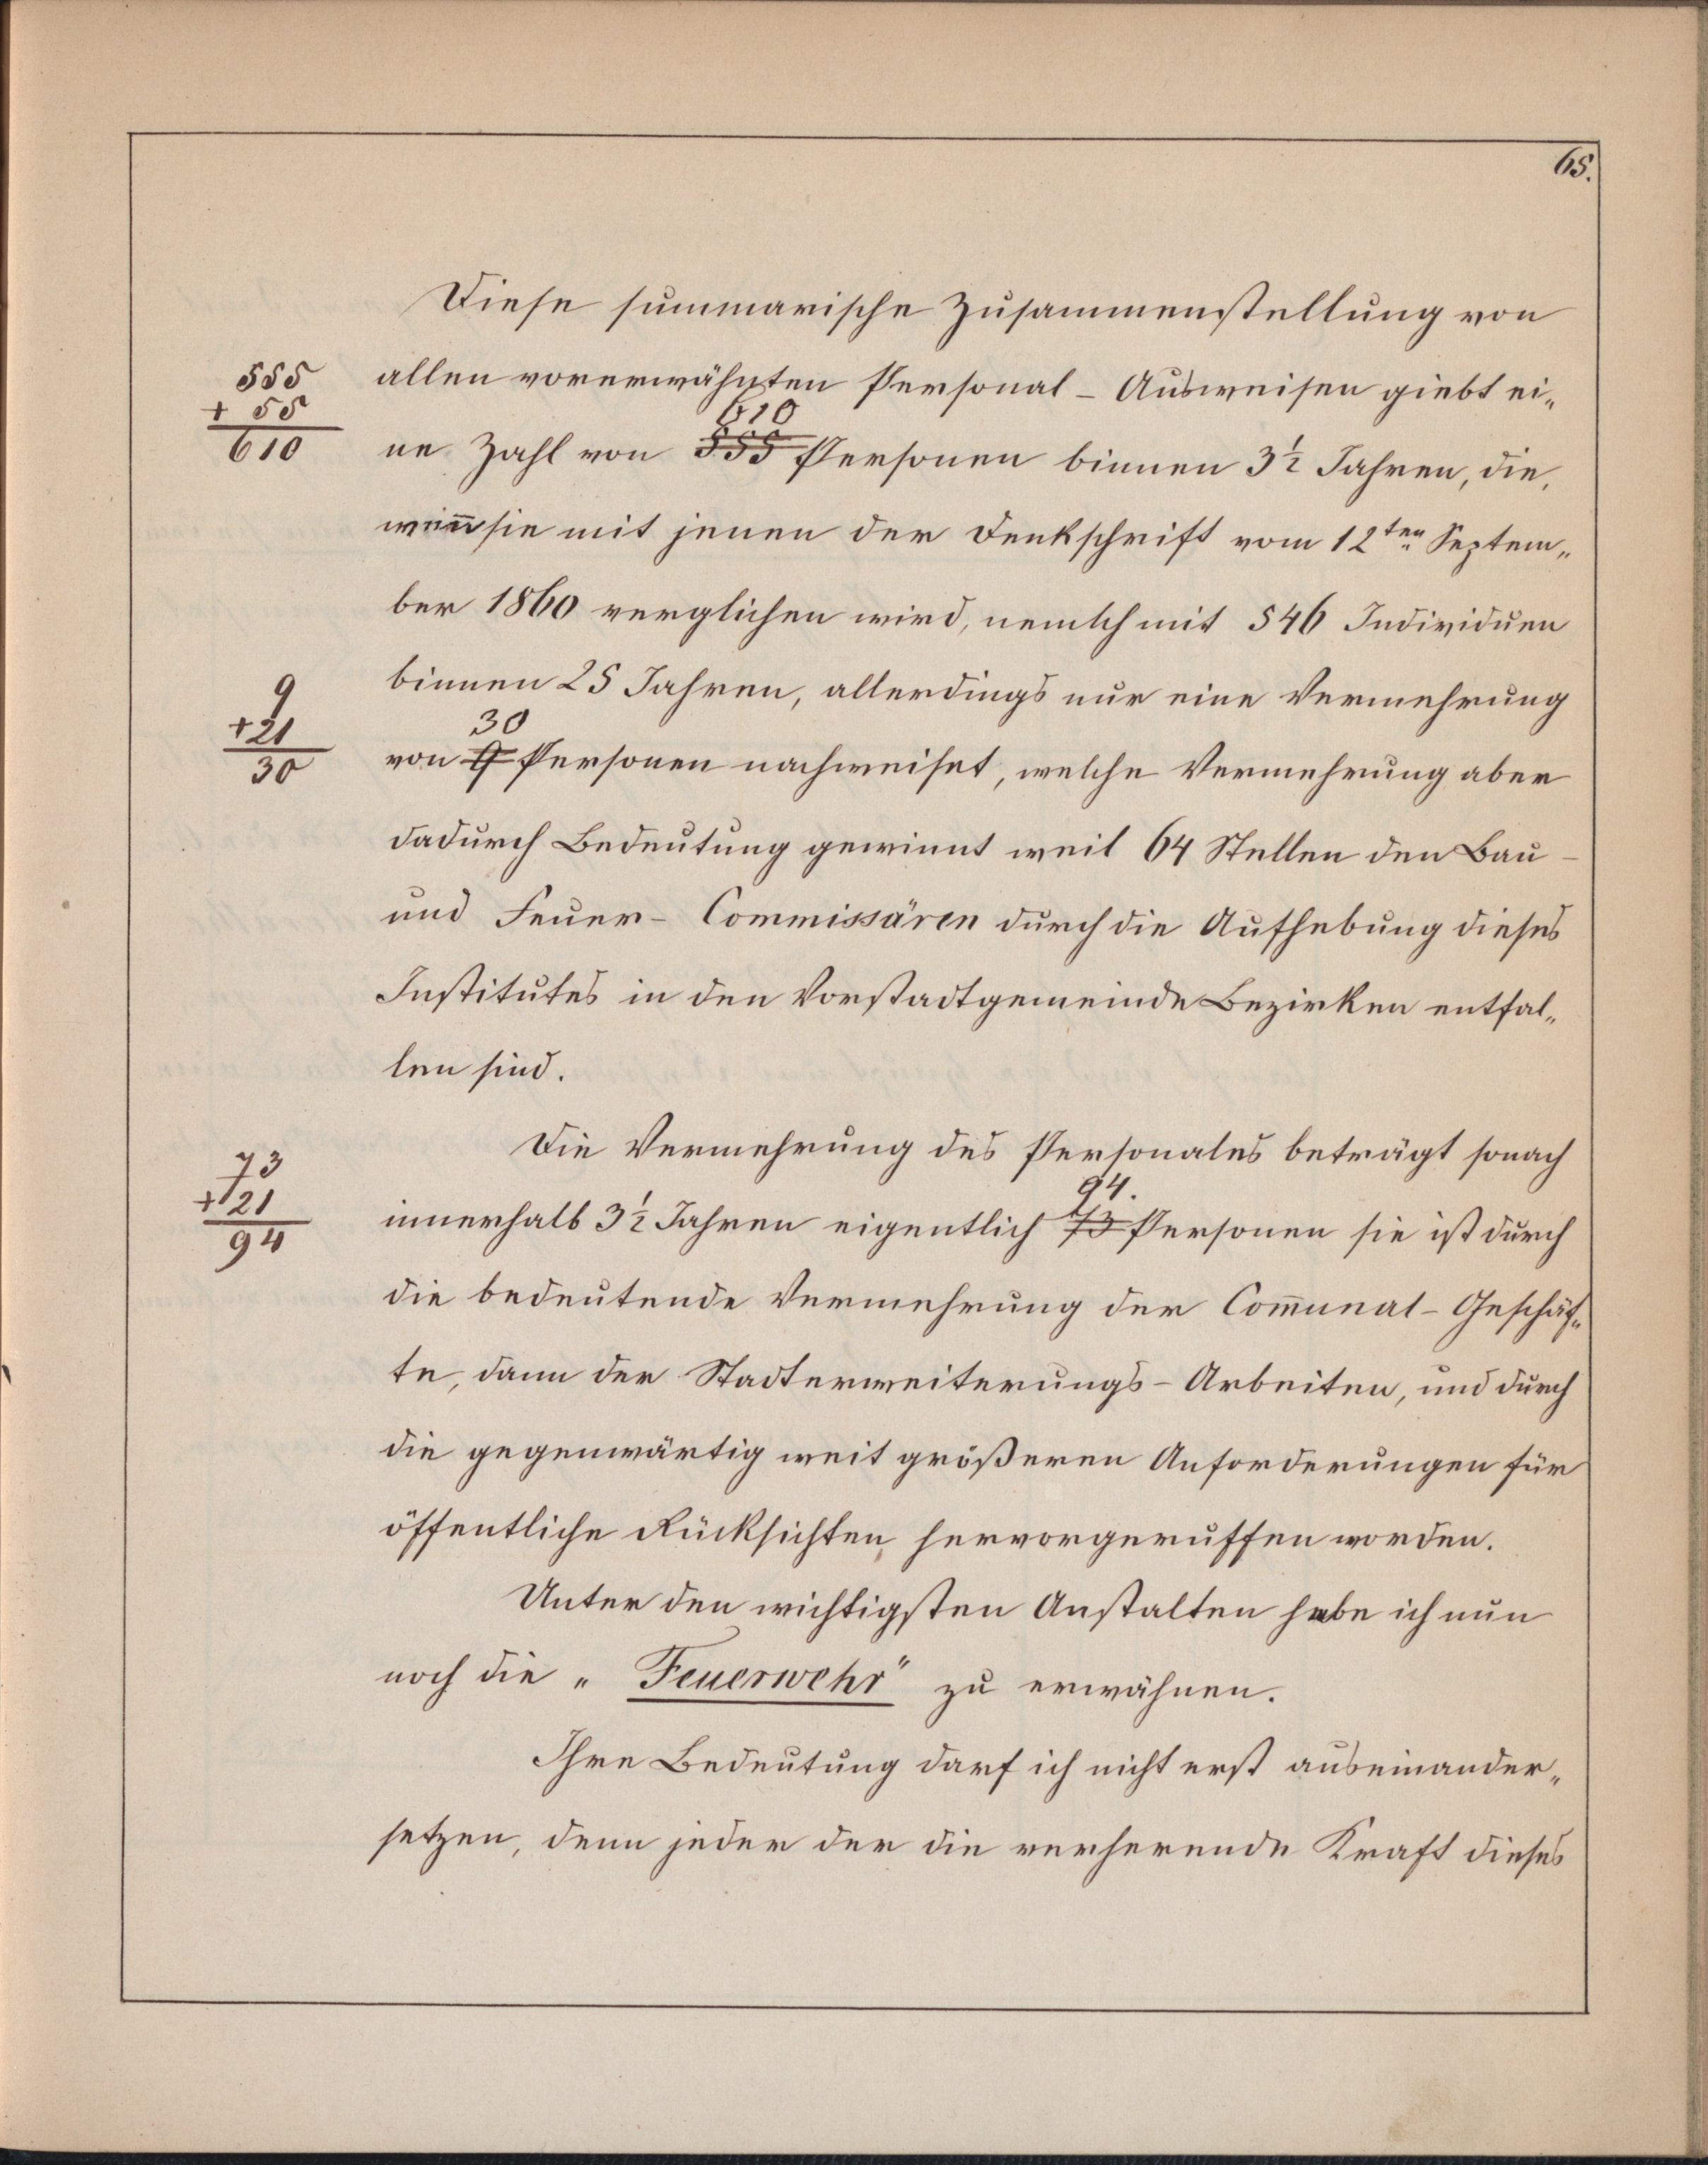 65.
Diese summarische Zusammenstellung von
555
allen vorerwähnten Personal-Ausweisen giebt ei„
+ 55
610
610
ne Zahl von 555 Personen binnen 3½ Jahren, die,
weñ sie mit jenen der Denkschrift vom 12ten Septem„
ber 1860 verglichen wird, nemlch mit 546 Individuen
binnen 25 Jahren, allerdings nur eine Vermehrung
9
+21
30
30
von 9 Personen nachweiset, welche Vermehrung aber
dadurch Bedeutung gewinnt weil 64 Stellen den Bau-
und Feuer-Commissären durch die Aufhebung dieses
Institutes in den Vorstadtgemeinde Bezirken entfal„
len sind.
Die Vermehrung des Personales beträgt sonach
73
+21
94
94.
innerhalb 3½ Jahren eigentlich 73 Personen sie ist durch
die bedeutende Vermehrung der Com̄unal-Geschäf„
te, dann der Stadterweiterungs-Arbeiten, und durch
die gegenwärtig weit größeren Anforderungen für
öffentliche Rücksichten hervorgeruffen worden.
Unter den wichtigsten Anstalten habe ich nun
noch die „Feuerwehr" zu erwähnen.
Ihre Bedeutung darf ich nicht erst auseinander„
setzen, denn jeder der die verherende Kraft dieses